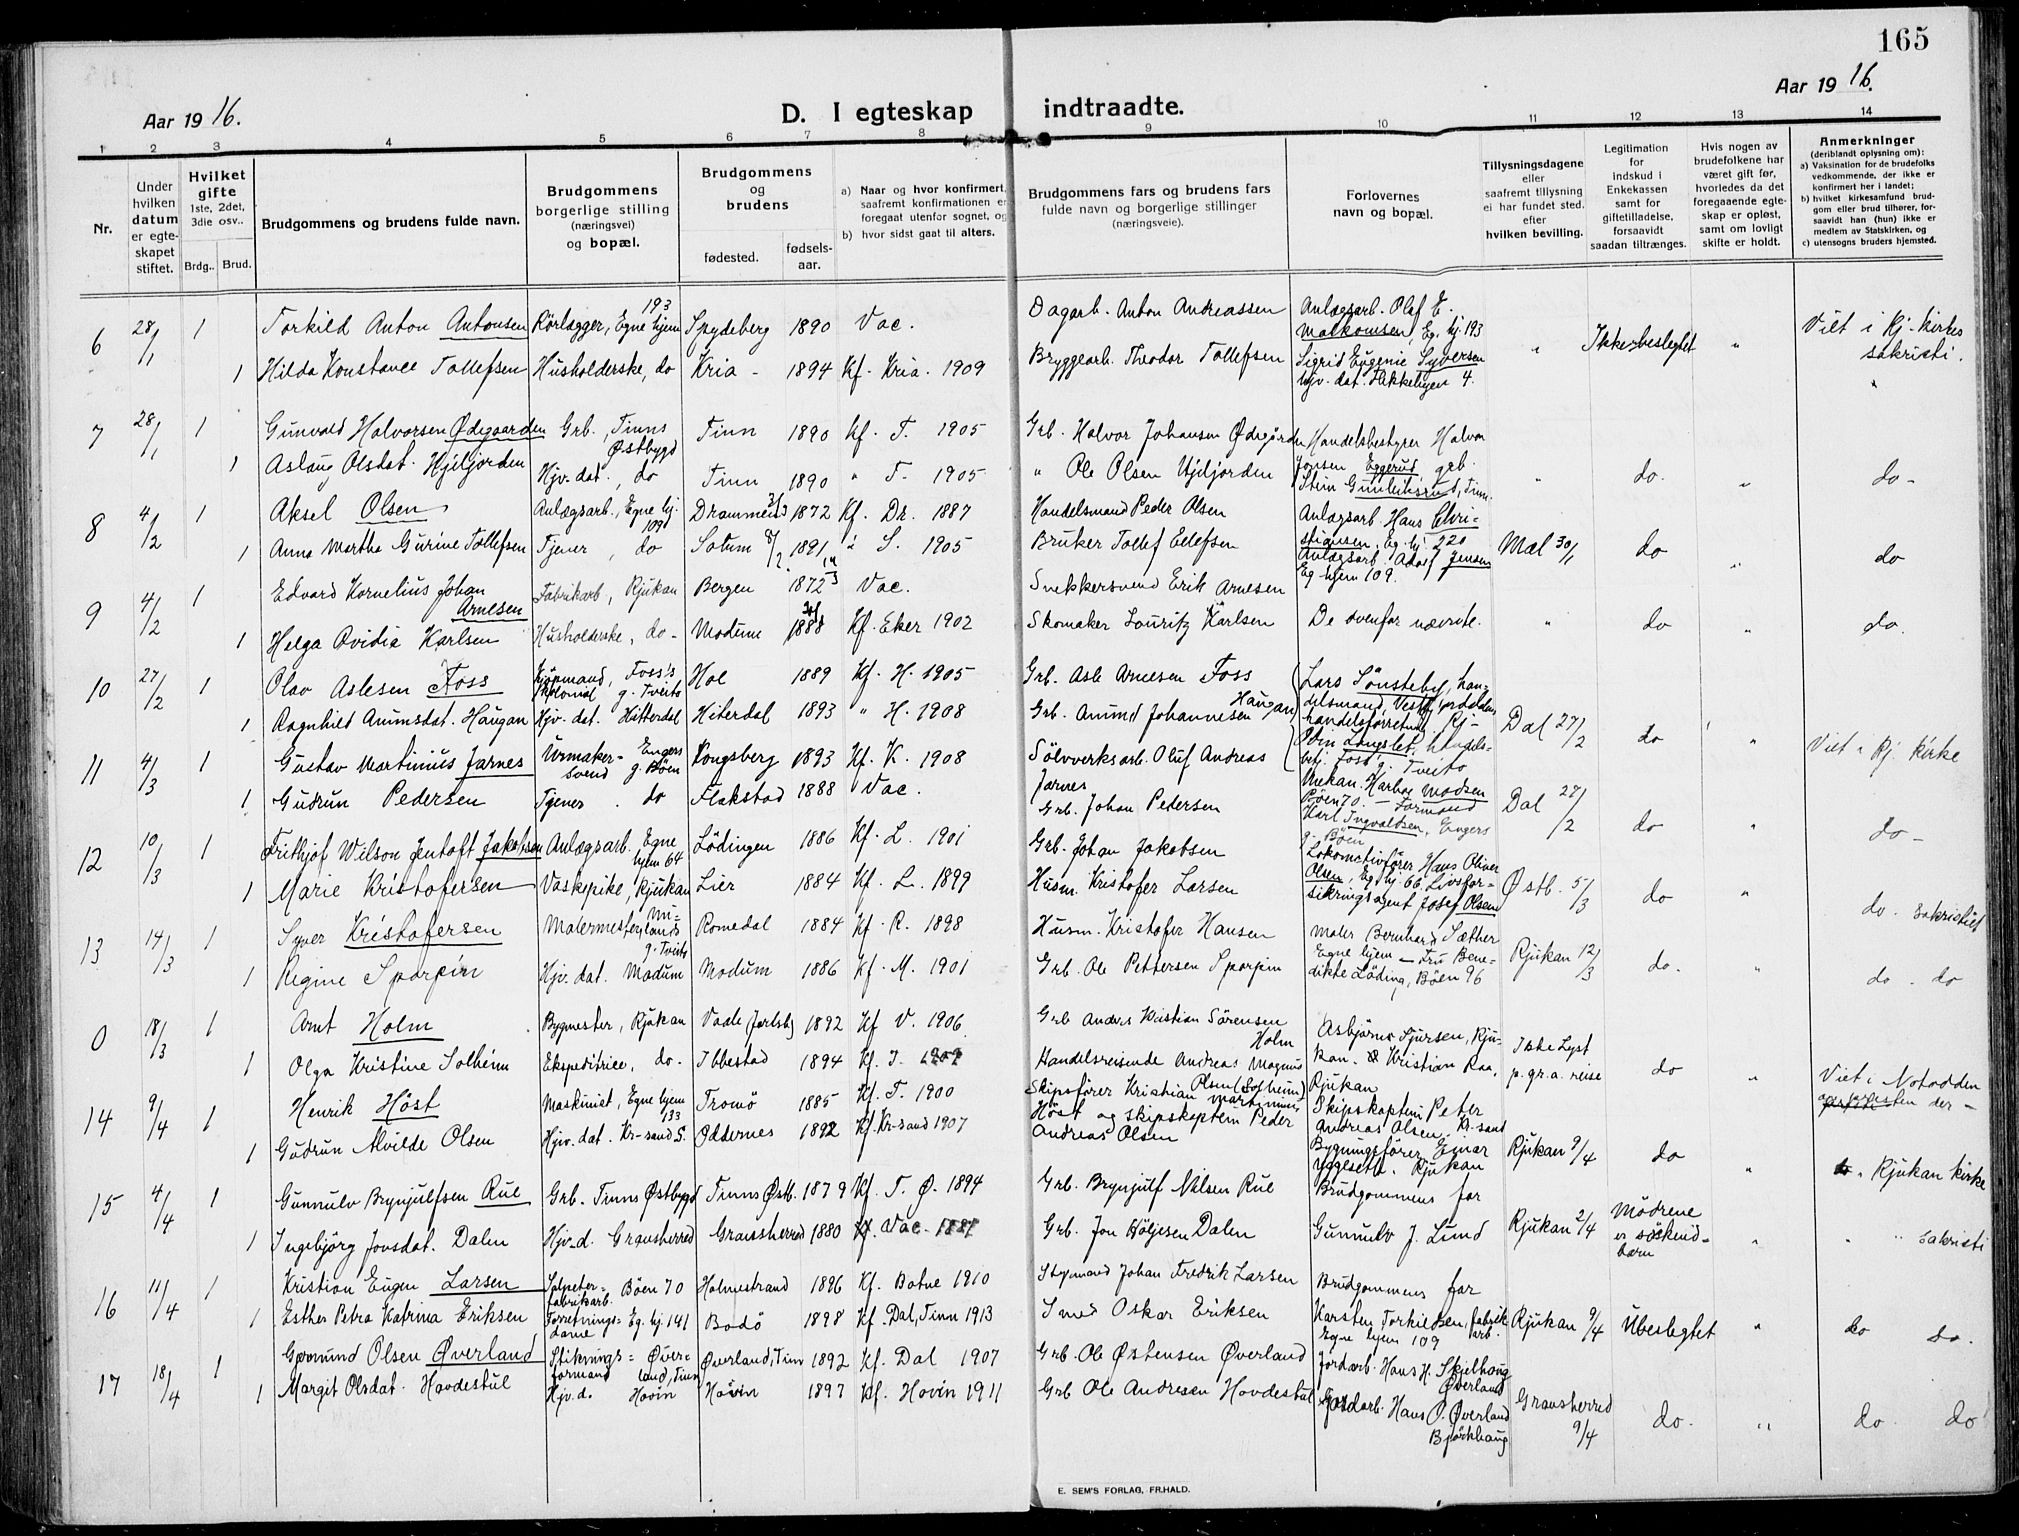 165
Aar 19 16.
D. I egteskap indtraadte.
Aar 19 16.
1 2 3 4 5 6 7 8 9 10 11 12 13 14
Nr.
Under hvilken datum er egteskapet stiftet.
Hvilket gifte 1ste, 2det, 3die osv..
Brdg.. Brud.
Brudgommens og brudens fulde navn.
Brudgommens borgerlige stilling (næringsvei) og bopæl.
Brudgommens og brudens
fødested. fødselsaar.
a) Naar og hvor konfirmert, saafremt konfirmationen er foregaat utenfor sognet, og
b) hvor sidst gaat til alters.
Brudgommens fars og brudens fars fulde navn og borgerlige stillinger (næringsveie).
Forlovernes navn og bopæl.
Tillysningsdagene eller saafremt tillysning ei har fundet sted, efter hvilken bevilling.
Legitimation for indskud i Enkekassen samt for giftetilladelse, forsaavidt saadan tiltrænges.
Hvis nogen av brudefolkene har været gift før, hvorledes da det foregaaende egteskap er opløst, samt om lovligt skifte er holdt.
Anmerkninger
(deriblandt oplysning om):
a) Vaksination for de brudefolks vedkommende, der ikke er konfirmert her i landet;
b) hvilket kirkesamfund brudgom eller brud tilhører, forsaavidt han (hun) ikke er medlem av Statskirken, og
c) utensogns bruders hjemsted.
6 28/1 1 Torkild Anton Antonsen Rörlægger, Egne hjem 193 Spydeberg 1890 Vac. Dagarb. Anton Andreassen Anlægsarb. Olaf E. Malkomsen, Eg. hj. 193 " Ikke beslegtet " Viet i Rj. kirkes sakristi.
1 Hilda Konstance Tollefsen Husholderske, do Kria - 1894 Kf. Kria. 1909 Bryggearb. Theodor Tollefsen Sigrid Eugenie Syversen hjv. dat. 4.
7 28/1 1 Gunvald Halvorsen Ødegaarden Grb., Tinns Østbygd Tinn 1890 Kf. T. 1905 Grb. Halvor Johansen Ødegården Handelsbestyrer Halvor Jonsen Eggerud, grb. " do. " do -
1 Aslaug Olsdat. Hjiljorden Hjv. dat., do Tinn 1890 " T. 1905 " Ole Olsen Hjiljorden Stein Gunleiksrud, Tinn.
8 4/2 1 Aksel Olsen Anlægsarb., Egne hj. 109 Drammen 1872 Kf. Dr. 1887 Handelsmand Peder Olsen Anlægsarb. Hans Christiansen, Eg. hj. 220 Mæl 30/1 do " do
1 Anna Martha Gurine Tollefsen Tjener, do Solum 1891 " S. 1905 Bruker Tollef Ellefsen Anlægsarb. Adolf Jensen Eg. hjem 109.
9 4/2 1 Edvard Kornelius Johan Arnesen Fabrikarb, Rjukan Bergen 1872 Vac. Snekkersvend Erik Arnesen
1 Helga Ovidia Karlsen Husholderske, do - Modum 1888 Kf. Eker 1902 Skomaker Lauritz Karlsen De ovenfor nævnte. " do " do.
10 27/2 1 Olav Aslesen Foss Kjöpmand, Foss's kolonial g. Tveito Hol 1889 Kf. H. 1905 Grb. Asle Arnesen Foss Lars Sönsteby, handelsmand, Vestfjorddalens handelsforretning Rj- Dal 27/2 do "
1 Ragnhild Anunsdat. Haugan Hjv. dat. Hitterdal Hiterdal 1893 " H. 1908 Grb. Anund Johannesen Haugan Odin Langslet, handelsbetj. Foss g. Tveito
11 4/3 1 Gustav Martinius Jarnes Urmakersvend Engers g. Bøen Kongsberg 1893 Kf. K. 1908 Sölvverksarb. Oluf Andreas Jarnes Mekan. Harboe Madsen Bøen 70. - Dal 27/2 do " Viet i Rj. kirke
1 Gudrun Pedersen Tjener. do Flakstad 1888 Vac. Grb. Johan Pedersen Formand Karl Ingvaldsen, Engers g. Bøen do -
12 10/3 1 Frithjof Wilson Jentoft Jakobsen Anlægsarb. Egne hjem 64 Lödingen 1886 Kf. L. 1901 Grb. Johan Jakobsen Lokomotivfører Hans Oliver Olsen, Eg. hj. 66. Østb. 5/3 do "
1 Marie Kristofersen Vaskepike, Rjukan Lier 1884 Kf. L. 1899 Husm. Kristofer Larsen Livsforsikringsagent Josef Olsen do. Sakristiet
13 14/3 1 Syver Kristofersen Malermester, g. Tveito Romedal 1884 Kf. R. 1898 Husm. Kristofer Hansen Maler Bernhard Sæther Egne hjem - Rjukan 12/3 do. "
1 Regine Sporpin Hjv. dat. Modum Modum 1886 Kf. M. 1901 Grb. Ole Pettersen Sporpin Fru Benedikte Löding, Bøen 96 do. do
0 18/3 1 Arnt Holm Bygmester, Rjukan Vaale (Jarlsb.) 1892 Kf V. 1906 Grb Anders Kristian Sörensen Holm Asbjörn Sjursen, Rjukan. Ikke lyst p. gr. a. reise do "
1 Olga Kristine Solheim Ekspeditrice, do. Ibbestad 1894 Kf. I. 1909 Handelsreisende Andreas Magnus Olsen (Solheim) Kristian Raa, Rjukan
14 9/4 1 Henrik Höst Maskinist, Egne hjem 133 Tromö 1885 Kf. T. 1900 Skipsfører Kristian Martinius Höst og skipskaptein Peder Andreas Olsen Skipskaptein Peter Andreas Olsen, Kr-sand Rjukan 9/4 do " Viet i Notodden
1 Gudrun Alvilde Olsen Hjv. dat. Kr-sand S. Oddernes 1892 Kf. Kr-sand 1907 Bygningsfører Einar Rjukan
15 4/4 1 Gunnulv Brynjulfsen Rul Grb. Tinns Østbygd Tinns Østb. 1879 Kf. T. Ø. 1894 Grb. Brynjulf Nilsen Rul Brudgommens far Rjukan 2/4 Mödrene er söskendbarn " Rjukan kirke
1 Ingebjörg Jonsdat. Dalen Hjv. d. Gransherred Gransherred 1880 Vac. Grb. Jon Höljesen Dalen Gunnulv J. Lund " " sakristi
16 11/4 1 Kristian Eugen Larsen Salpeterfabrikarb. Bøen 70 Holmestrand 1896 Kf. Botne 1910 Styrmand Johan Fredrik Larsen Brudgommens far Rjukan 9/4 Ubeslegtet " do do.
1 Esther Petra Katrina Eriksen Forretningsdame Eg. hj. 141 Bodö 1898 Kf. Dal, Tinn 1913 Smed Oskar Eriksen Karsten Torkildsen, fabrikarb. Egne hjem 109
17 18/4 1 Gunmund Olsen Øverland Stikningsformand Øverland, Tinn Øverland, Tinn 1892 Kf. Dal 1907 Grb. Ole Østensen Øverland Jordarb. Hans H. Skjelhaug Øverland Gransherred 9/4 do. " do. do
1 Margit Olsdat. Hovdestul Hjv. d. Hovin Hövin 1897 Kf. Hovin 1911 Grb Ole Andresen Hovdestul Jordarb. Hans O. Øverland Björkhaug
E. SEM'S FORLAG, FR.HALD.